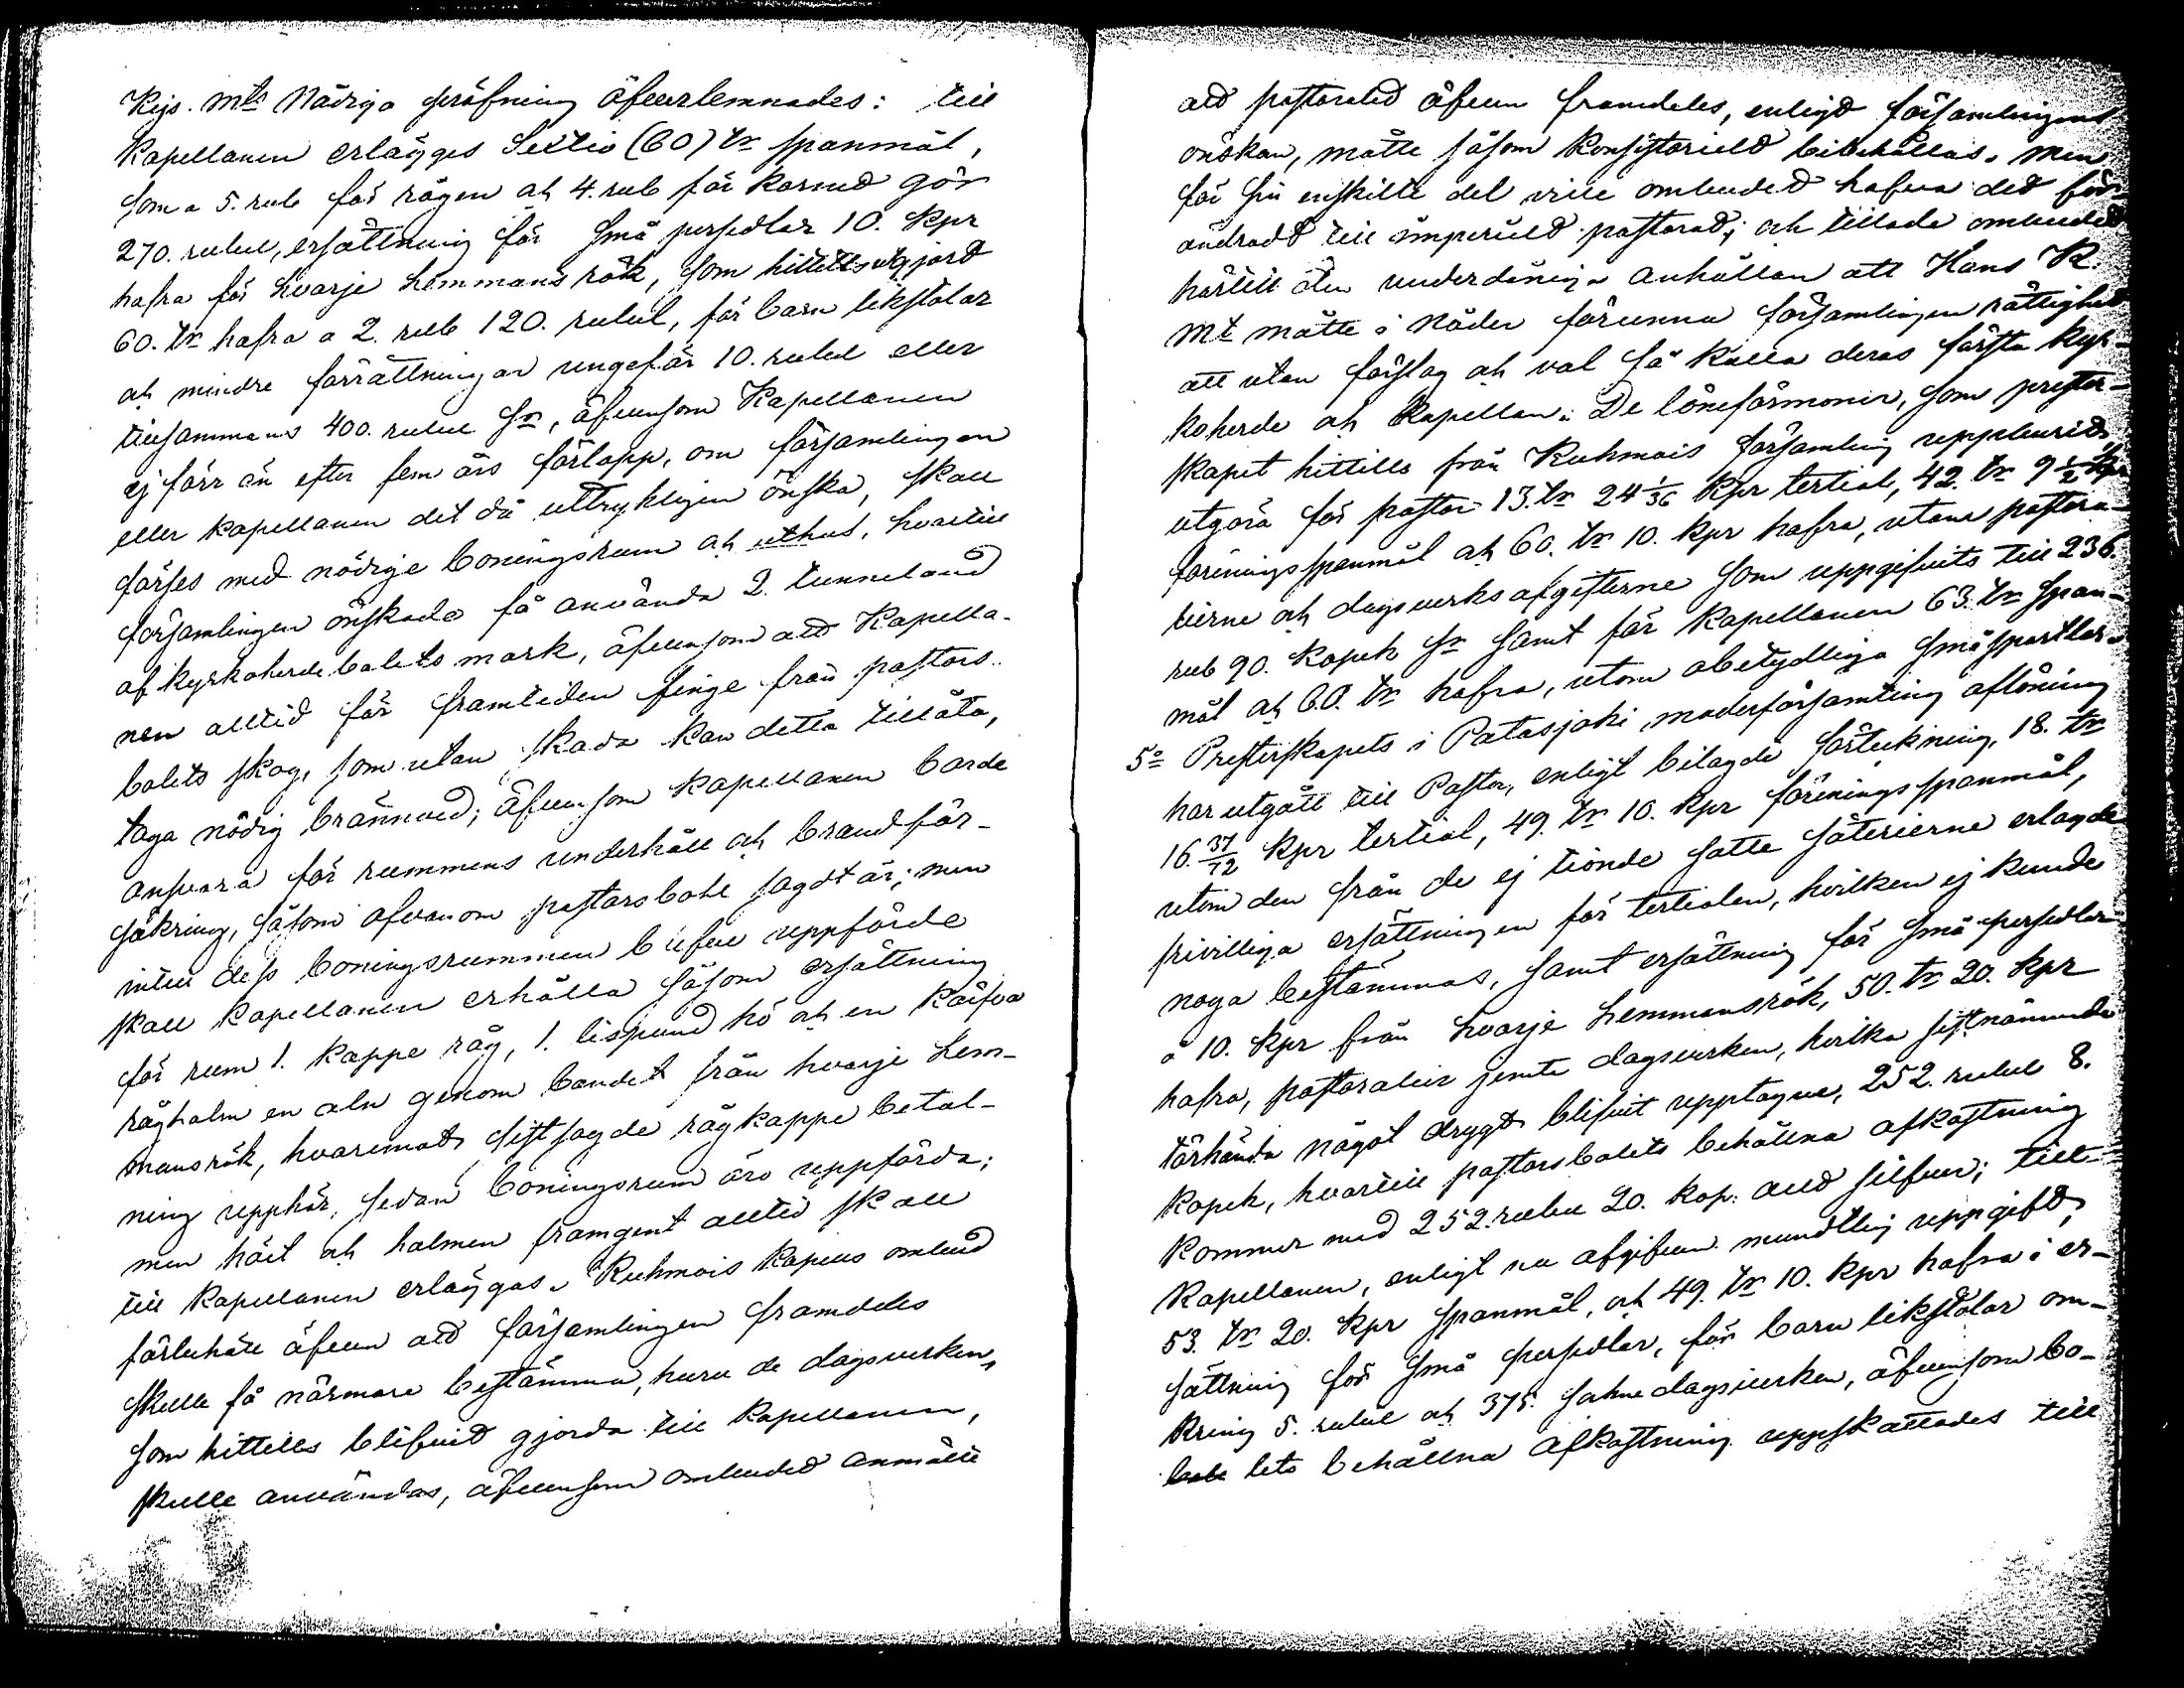 Kejs. Mts Nådiga pröfning öfverlemnades: till
kapellanen erlägges Sextio (60) tr spanmål,
som a 5. rub för rågen och 4. rub för kornet gör
270. rubel, ersättning för små persedlar 10. kpr
hafra för hvarje hemmans rök, som hittills utgjord
60. tr hafra a 2. rub 120. rubel, för barn likstolar
och mindre förrättningar ungefär 10. rubel eller
tillsammans 400. rubel Sr, äfvensom kapellanen
ej förr än efter fem års förlopp, om församlingen
eller kapellanen det då uttrykligen önska, skall
förses med nödige boningsrum och uthus, hvartill
församlingen önskade få använda 2. tunneland
af kyrkoherde bolets mark, äfvensom att kapella-
nen alltid för framtiden finge från pastors-
bolets skog, som utan skada kan detta tillåta,
taga nödig brännved; äfvensom kapellanen borde
ansvara för rummens underhåll och brandför-
säkring, såsom ofvan om pastorsbohl sagdt är; men
intill dess boningsrummen blifva uppförde
skall kapellanen erhålla såsom ersättning
för rum 1. kappe råg, 1. lispund hö och en kärfva
råghalm en aln genom bandet från hvarje hem-
mansrök, hvaremot sistsagde rågkappe betal-
ning upphör, sedan boningsrum äro uppförda;
men höet och halmen framgent alltid skall
till kapellanen erläggas. Kuhmois kapells ombud
förbehöll äfven att församlingen framdeles
skulle få närmare bestämma, huru de dagsverken,
som hittills blifvit gjorda till kapellanen,
skulle användas, äfvensom ombudet anmälte
att pastoratet äfven framdeles, enligt församlingens
önskan, måtte såsom konsistorielt bibehållas. Men
för sin enskilte del ville ombudet hafva det för-
ändradt till imperielt pastorat; och tillade ombudet
härtill den underdåniga anhållan att Hans K.
Mt måtte i Nåder förunna församlingen rättighet
att utan förslag och val få kalla deras första kyr-
koherde och kapellan. De löneförmoner, som prester-
skapet hittills från Kuhmois församling uppburit,
utgöra för pastor 13. tr 24 1/36 kpr tertial, 42. tr 9 1/2 kpr
förenings spanmål och 60. tr 10. kpr hafra, utom pastora-
lierne och dagsverks afgifterne som uppgifvits till 236.
rub 90. kopek Sr samt för kapellanen 63. tr span-
mål och 60. tr hafra, utom obetydliga småpartlar.
5o Presterskapets i Patasjoki moderförsamling aflöning
har utgått till Pastor, enligt bilagde förteckning, 18. tr
16. 37/72 kpr tertial, 49. tr 10. kpr förenings spanmål,
utom den från de ej tionde satte säterierne erlagde
frivilliga ersättningen för tertialen, hvilken ej kunde
noga bestämmas, samt ersättning för små persedlar
a 10. kpr från hvarje hemmansrök, 50. tr 20. kpr
hafra, pastoralier jemte dagsverken, hvilka sistnämnde
törhända något drygt blifvit upptagne, 252. rubel 8.
kopek, hvartill pastorsbolets behållna afkastning
kommer med 252. rubel 20. kop. allt silfver; till
kapellanen, enligt nu afgifven mundtlig uppgift,
53. tr 20. kpr spanmål, och 49. tr 10. kpr hafra i er-
sättning för små persedlar, för barn likstolar om-
kring 5. rubel och 375. fahne dagsverken, äfvensom bo-
lets behållna afkastning uppskattades till